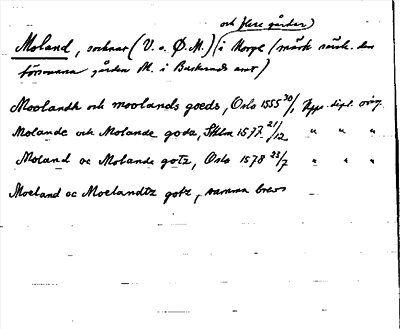 och flere gårdar)
Moland, socknar (V. o. Ø. M.) (i Norge (märk särsk. den
försvunna gården M. i Buskeruds amt)
Moolandh och moolands goeds, Oslo 1555 30/1, Upps. dipl. orig.
Molande och Molande goda, Sthlm 1577 21/12 " " "
Moland oc Molande gotz, Oslo 1578 23/7 " " "
Moeland oc Moelandtz gotz, samma brev